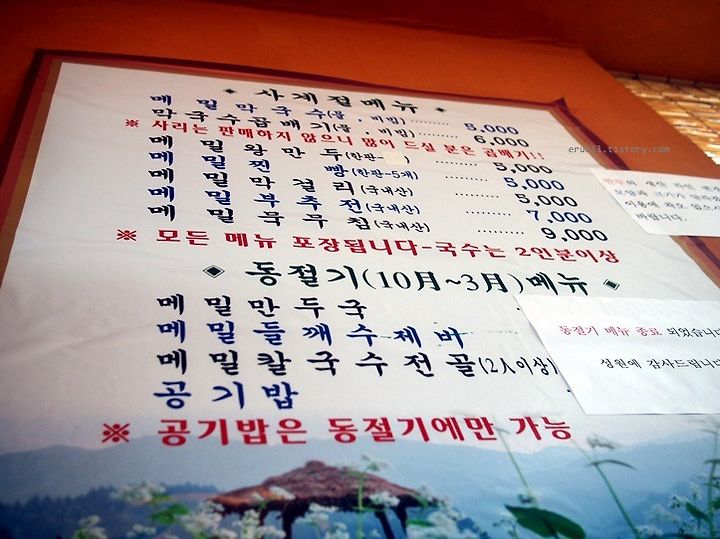 ◈ 사계절메뉴 ◈
메밀막국수(물, 비빔) ......... 5,000
막국수곱배기(물, 비빔) ......... 6,000
※ 사리는 판매하지 않으니 많이 드실 분은 곱배기!!
메밀왕만두(한판- ) ......... 5,000
메밀찐빵(한판-5개) ......... 5,000
메밀막걸리(국내산) ......... 5,000
메밀부추전(국내산) ......... 7,000
메밀묵무침(국내산) ......... 9,000
※ 모든 메뉴 포장됩니다-국수는 2인분이상
◈ 동절기(10月~3月)메뉴 ◈
메밀만두국
메밀들깨수제비
메밀칼국수전골(2人이상)
공기밥
※ 공기밥은 동절기에만 가능
이용에
바랍니다.
동절기 메뉴 종료 되었습니다
성원에 감사드립니다
erunil.tistory.com